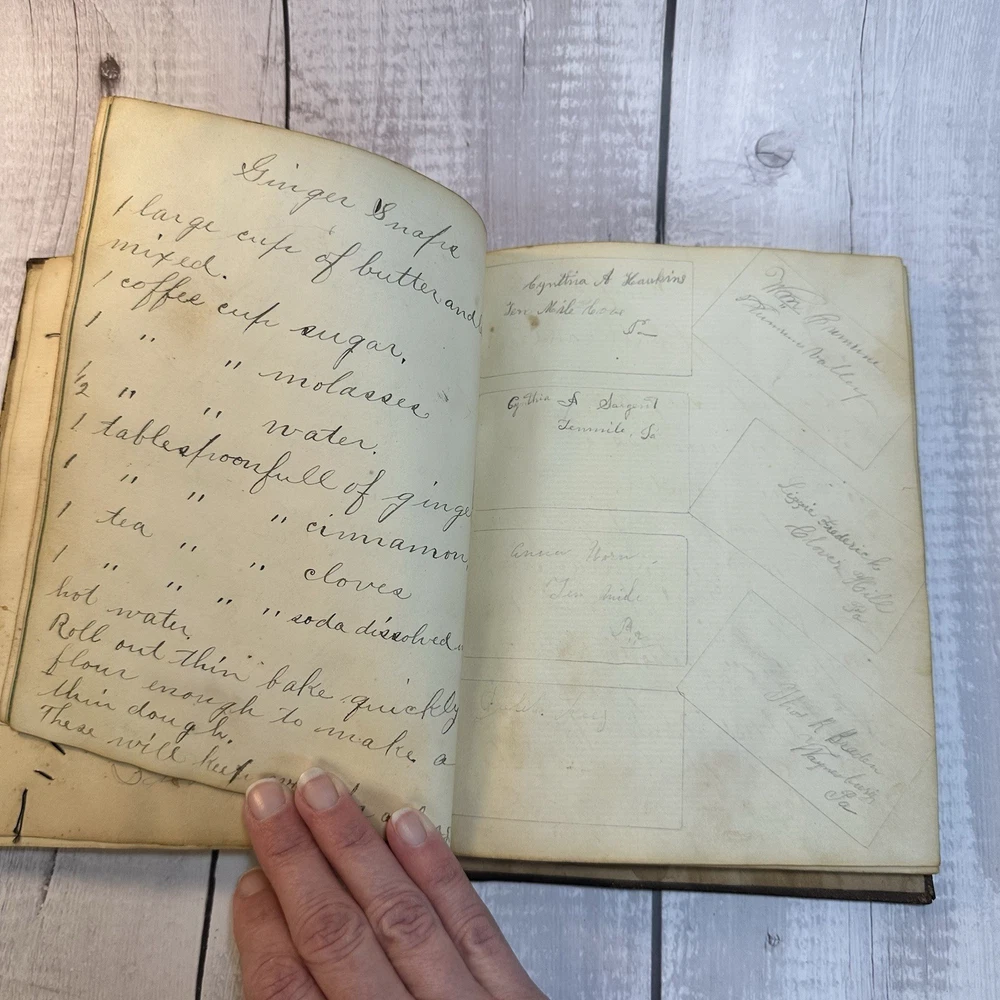 Ginger Snaps
1 large cup of butter and
mixed.
1 coffee cup sugar.
1 " " molasses
1/2 " " water.
1 tablespoonfull of ginge
1 " " " cinnamon
1 tea " " cloves
1 " " " " soda dissolved
hot water.
Roll out thin bake quickly
flour enough to make a
thin dough.
These will keep
Cynthia A Hawkins
Ten Mile
Pa
Cynthia A Sargent
Tenmile, Pa
Ten mile
Pa
Valley
Lizzie Frederick
Clover Hill
Pa
Waynesburg
Pa